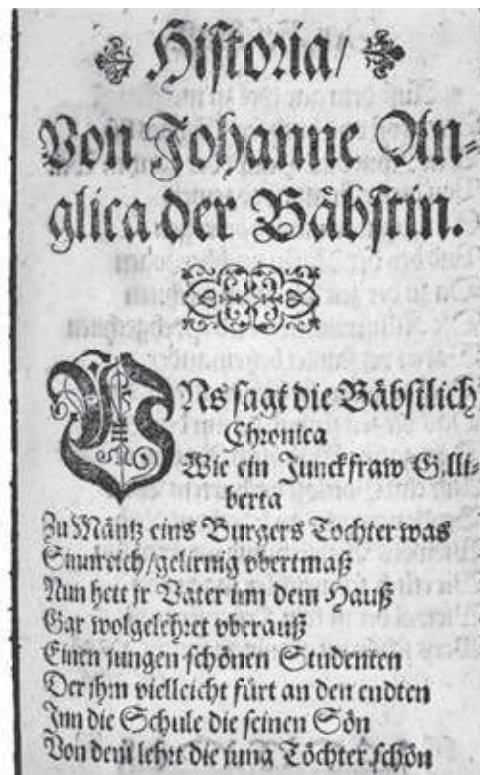 Historia/
Von Johanne An-
glica der Bäbstin.
VNs sagt die Bäbstlich
Chronica
Wie ein Junckfraw Gilli-
berta
Zu Mäntz eins Burgers Tochter was
Sinnreich/gelirnig vbertmaß
Nun hett jr Vater inn dem Hauß
Gar wolgelehret vberauß
Einen jungen schönen Studenten
Der ihm vielleicht fürt an den endten
Inn die Schule die seinen Sön
Von dem lehrt die jung Töchter schön